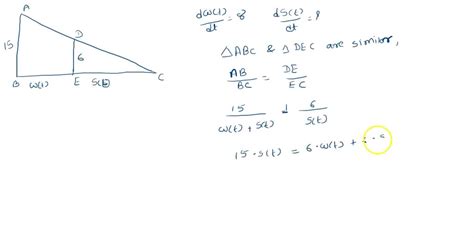 A
15
D
6
B
w(t)
E
S(t)
C
dw(t)/dt = 8    dS(t)/dt = ?
△ABC & △DEC are similar,
AB/BC = DE/EC
15/(w(t) + s(t)) = 6/s(t)
15 · s(t) = 6 · w(t) +